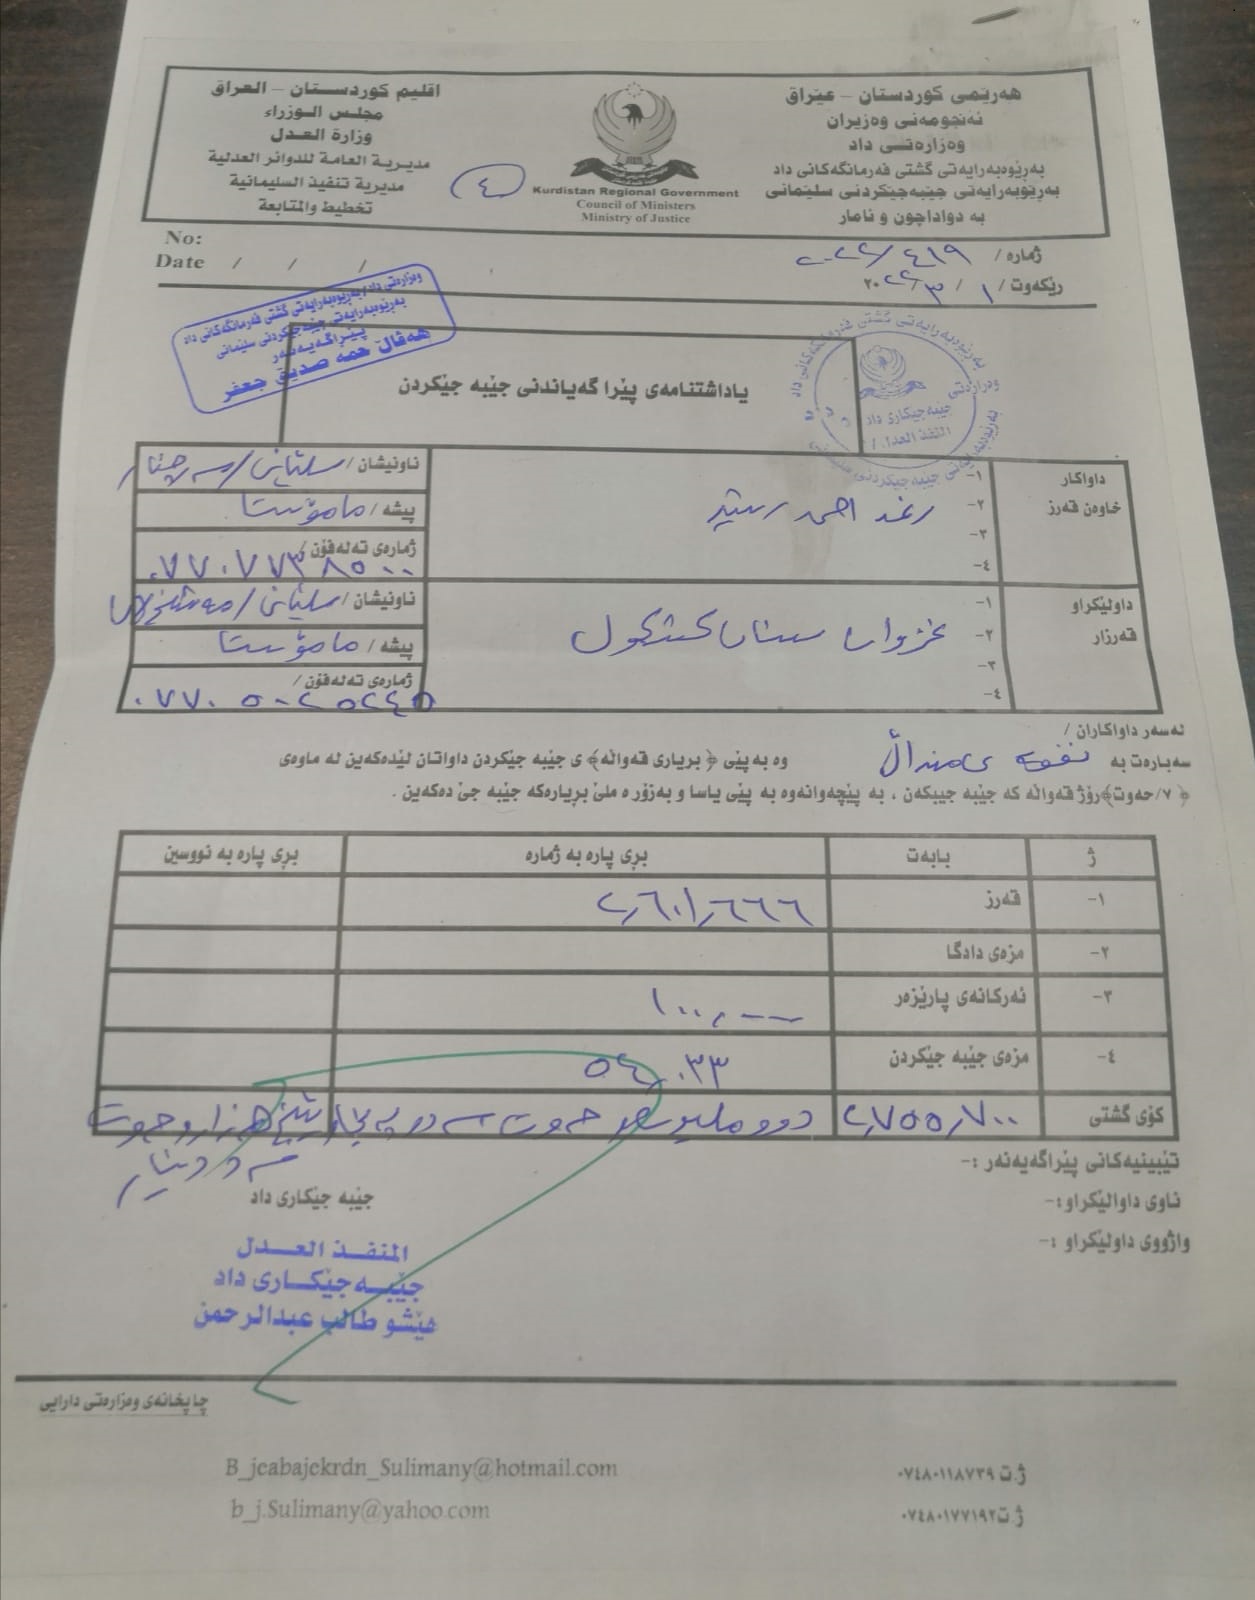 هەرێمی کوردستان – عێراق
ئەنجومەنی وەزیران
وەزارەتی داد
بەڕێوەبەرایەتی گشتی فەرمانگەکانی داد
بەڕێوبەرایەتی جێبەجێکردنی سلێمانی
بە دواداچون و ئامار
Kurdistan Regional Government
Council of Ministers
Ministry of Justice
اقليم كوردستان – العراق
مجلس الوزراء
وزارة العدل
مديرية العامة للدوائر العدلية
مديرية تنفيذ السليمانية
تخطيط والمتابعة
٤
ژمارە / ٤١٩/ ٢٠٢٢
ڕێکەوت / ١ / ٣/ ٢٠٢٢
No:
Date / / /
وەزارەتی داد/بەڕێوەبەرایەتی گشتی فەرمانگەکانی داد
بەڕێوەبەرایەتی جێبەجێکردنی سلێمانی
پێڕاگەیەنەر
هەڤاڵ حمە صدیق جعفر
جێبەجێکاری داد
المنفذ العدل /
یاداشتنامەی پێڕا گەیاندنی جێبە جێکردن
داواکار
خاوەن قەرز
١-
٢- رغد احمد رشيد
٣-
٤-
ناونیشان / سلێمانی/سەرچنار
پیشە / مامۆستا
ژمارەی تەلەفۆن /
٠٧٧٠٧٧٣٨٥٠٠
داولێکراو
قەرزار
١-
٢- غزوان سنان كشكول
٣-
٤-
ناونیشان / سلێمانی/
پیشە / مامۆستا
ژمارەی تەلەفۆن /
٠٧٧٠٥٠٢٥٢٤٥
لەسەر داواکاران /
سەبارەت بە نفقەی منداڵ وە بەپێی ﴿ بریاری قەوالە﴾ ی جێبە جێکردن داواتان لێدەکەین لە ماوەی
﴿ ٧/حەوت﴾رۆژ قەوالە کە جێبە جیبکەن ، بە پێچەوانەوە بە پێی یاسا و بەزۆرە ملێ بڕیارەکە جێبە جێ دەکەین .
ژ بابەت بڕی پارە بە ژمارە بڕی پارە بە نووسین
١- قەرز ٢,٦٠١,٦٦٦
٢- مزەی دادگا
٣- ئەرکانەی پارێزەر ١٠٠,٠٠٠
٤- مزەی جێبە جێکردن ٥٤,٠٣٣
کۆی گشتی ٢,٧٥٥,٧٠٠ دوو ملیۆن و حەوت سەد و پەنجاو پێنج هەزار و حەوت
سەد دینار
تێبینیەکانی پێراگەیەنەر :-
ناوی داوالێکراو:-
واژووی داولێکراو :-
جێبە جێکاری داد
المنفذ العدل
جێبە جێکاری داد
هێشو طالب عبدالرحمن
چاپخانەی وەزارەتی دارایی
B_jeabajekrdn_Sulimany@hotmail.com
b_j.Sulimany@yahoo.com
ژ.ت ٠٧٤٨٠١١٨٧٣٩
ژ.ت٠٧٤٨٠١٧٧١٩٢